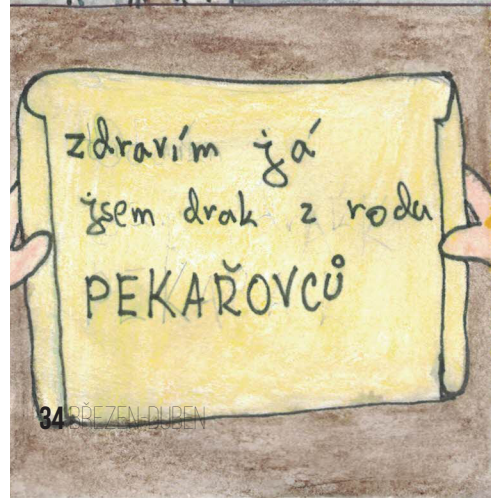 zdravím já
jsem drak z rodu
PEKAŘOVCŮ
34 BŘEZEN-DUBEN